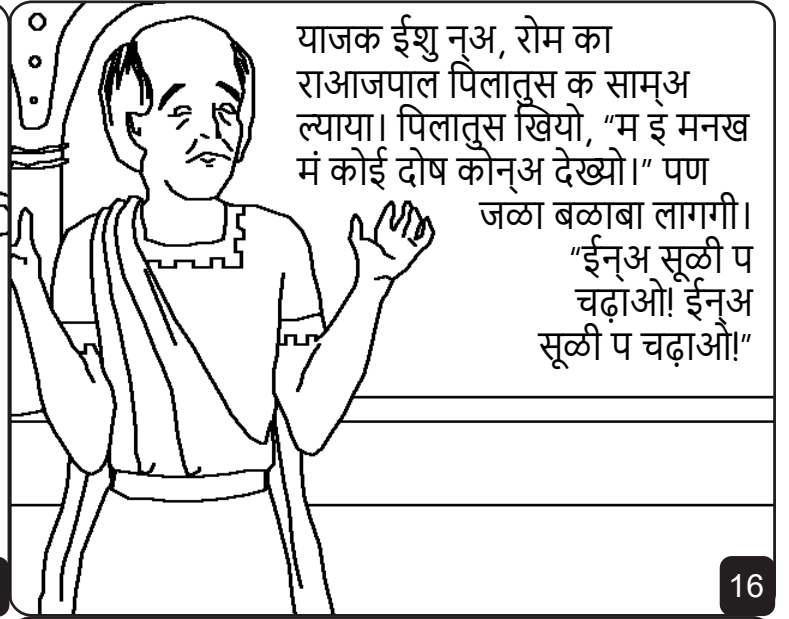 याजक ईशु न्अ, रोम का
राआजपाल पिलातुस क साम्अ
ल्याया। पिलातुस खियो, “म इ मनख
मं कोई दोष कोन्अ देख्यो।” पण
जळा बळाबा लागगी।
“ईन्अ सूळी प
चढ़ाओ! ईन्अ
सूळी प चढ़ाओ!”
16